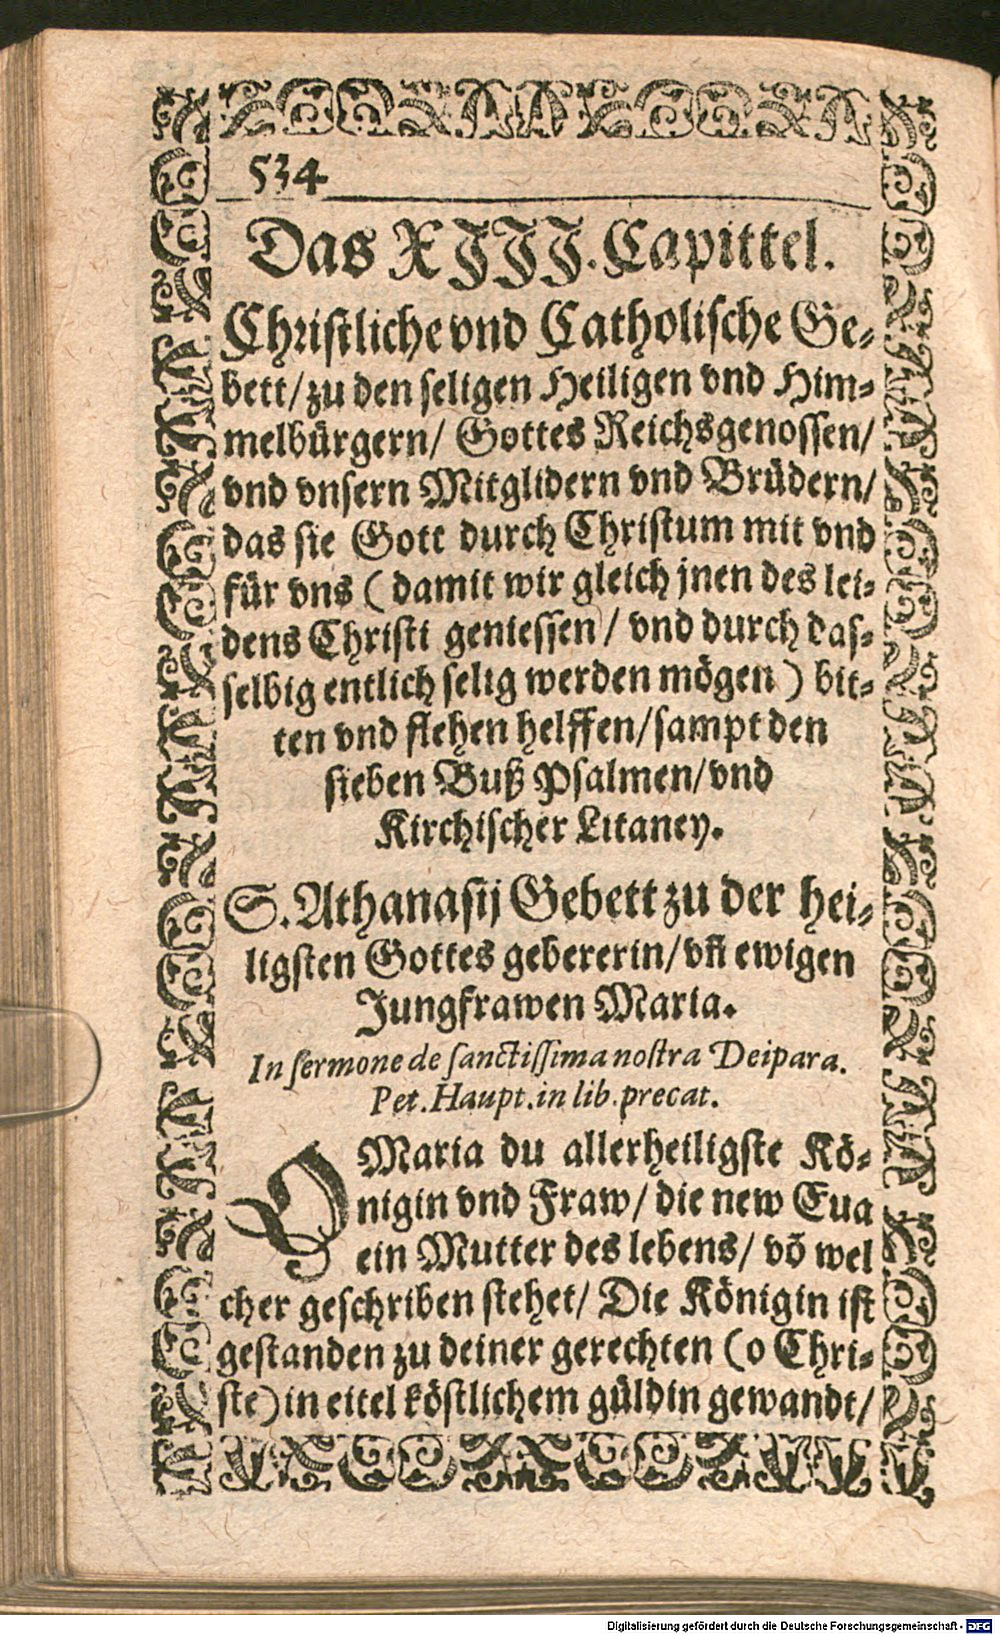 534
Das XIII. Capittel.
Chriſtliche vnd Catholiſche Ge-
bett/zu den ſeligen Heiligen vnd Him-
melbürgern/ Gottes Reichsgenoſſen/
vnd vnſern Mitglidern vnd Brüdern/
das ſie Gott durch Chriſtum mit vnd
für vns (damit wir gleich jnen des lei-
dens Chriſti genieſſen/ vnd durch daſ-
ſelbig entlich ſelig werden mögen) bit-
ten vnd flehen helffen/ſampt den
ſieben Buß Pſalmen/vnd
Kirchiſcher Litaney.
S. Athanaſij Gebett zu der hei-
ligſten Gottes gebererin/vñ ewigen
Jungfrawen Maria.
In ſermone de ſanctiſſima noſtra Deipara.
Pet. Haupt. in lib. precat.
O Maria du allerheiligſte Kö-
nigin vnd Fraw/ die new Eua
ein Mutter des lebens/ võ wel
cher geſchriben ſtehet/ Die Königin iſt
geſtanden zu deiner gerechten (o Chri-
ſte) in eitel köſtlichem güldin gewandt/
Digitalisierung gefördert durch die Deutsche Forschungsgemeinschaft - DFG